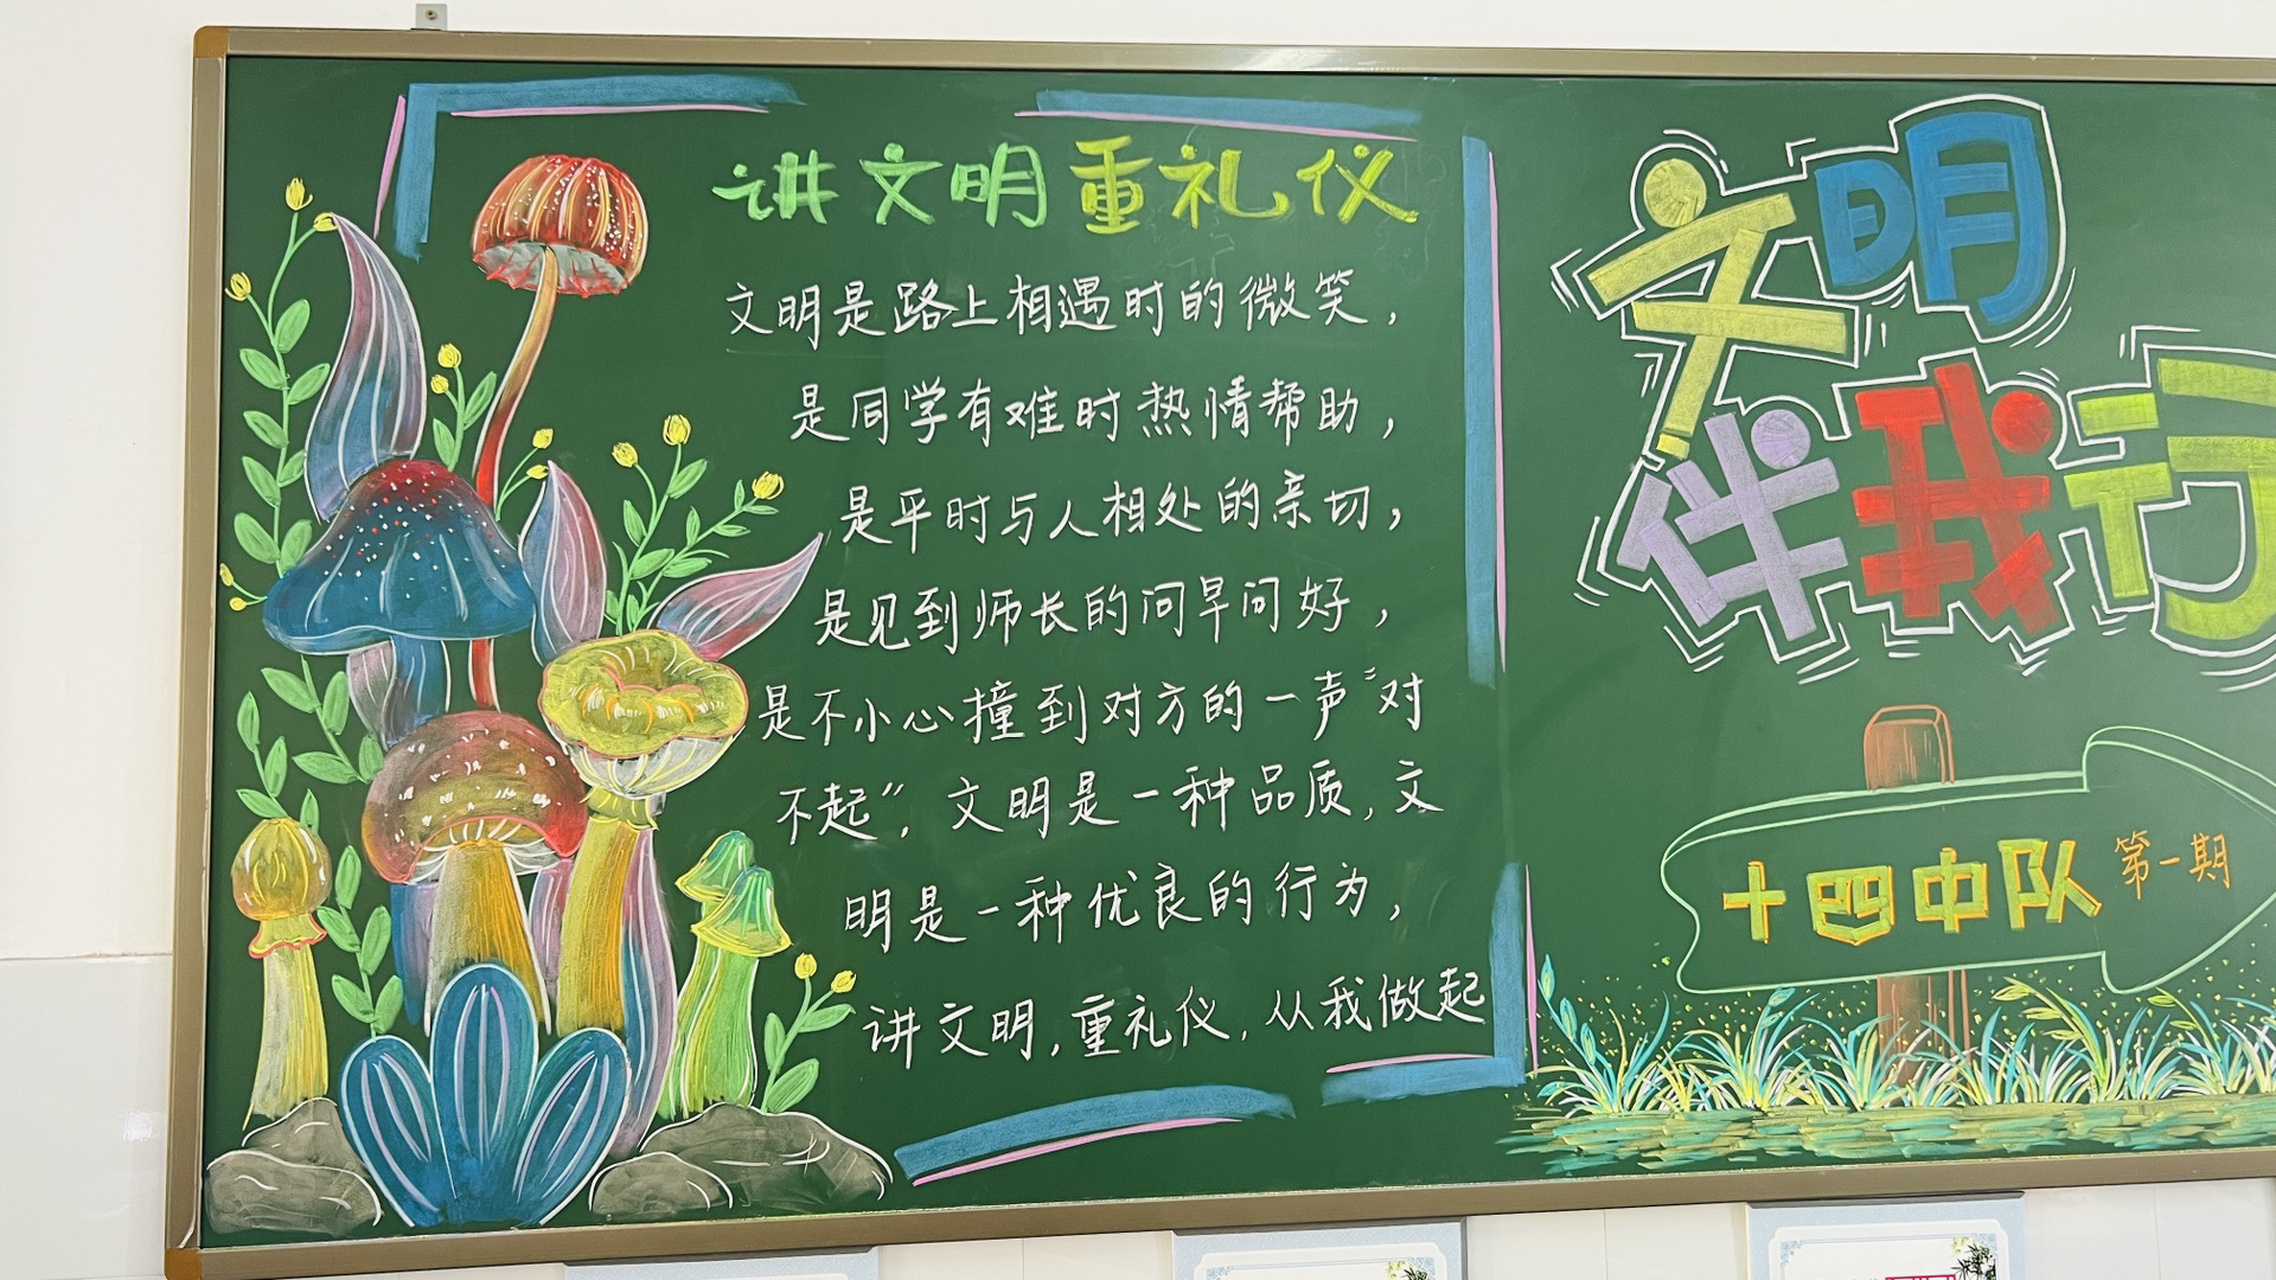 讲文明重礼仪
文明是路上相遇时的微笑，
是同学有难时热情帮助，
是平时与人相处的亲切，
是见到师长的问早问好，
是不小心撞到对方的一声“对
不起”，文明是一种品质，文
明是一种优良的行为，
讲文明，重礼仪，从我做起
文明
伴我行
十四中队 第一期